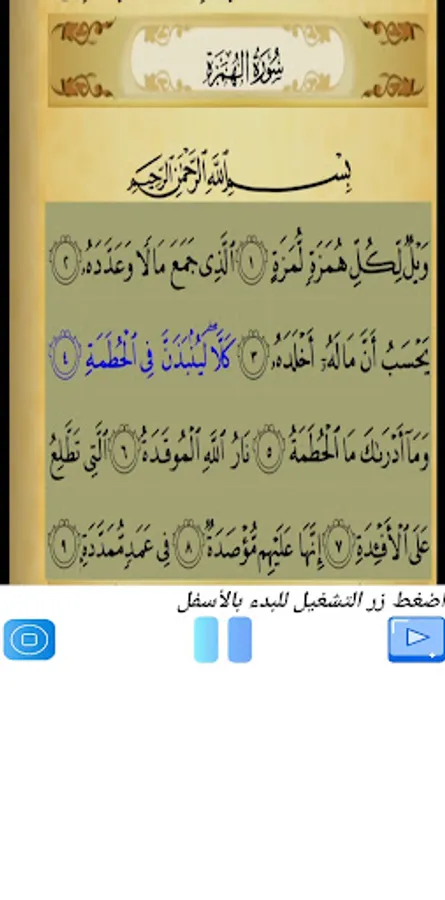 سُورَةُ الْهُمَزَةِ
بِسْمِ ٱللَّهِ ٱلرَّحْمَٰنِ ٱلرَّحِيمِ
وَيْلٌ لِّكُلِّ هُمَزَةٍ لُّمَزَةٍ ١ ٱلَّذِى جَمَعَ مَالًا وَعَدَّدَهُۥ ٢
يَحْسَبُ أَنَّ مَالَهُۥٓ أَخْلَدَهُۥ ٣ كَلَّا ۖ لَيُنۢبَذَنَّ فِى ٱلْحُطَمَةِ ٤
وَمَآ أَدْرَىٰكَ مَا ٱلْحُطَمَةُ ٥ نَارُ ٱللَّهِ ٱلْمُوقَدَةُ ٦ ٱلَّتِى تَطَّلِعُ
عَلَى ٱلْأَفْـِٔدَةِ ٧ إِنَّهَا عَلَيْهِم مُّؤْصَدَةٌ ٨ فِى عَمَدٍ مُّمَدَّدَةٍۭ ٩
اضغط زر التشغيل للبدء بالأسفل